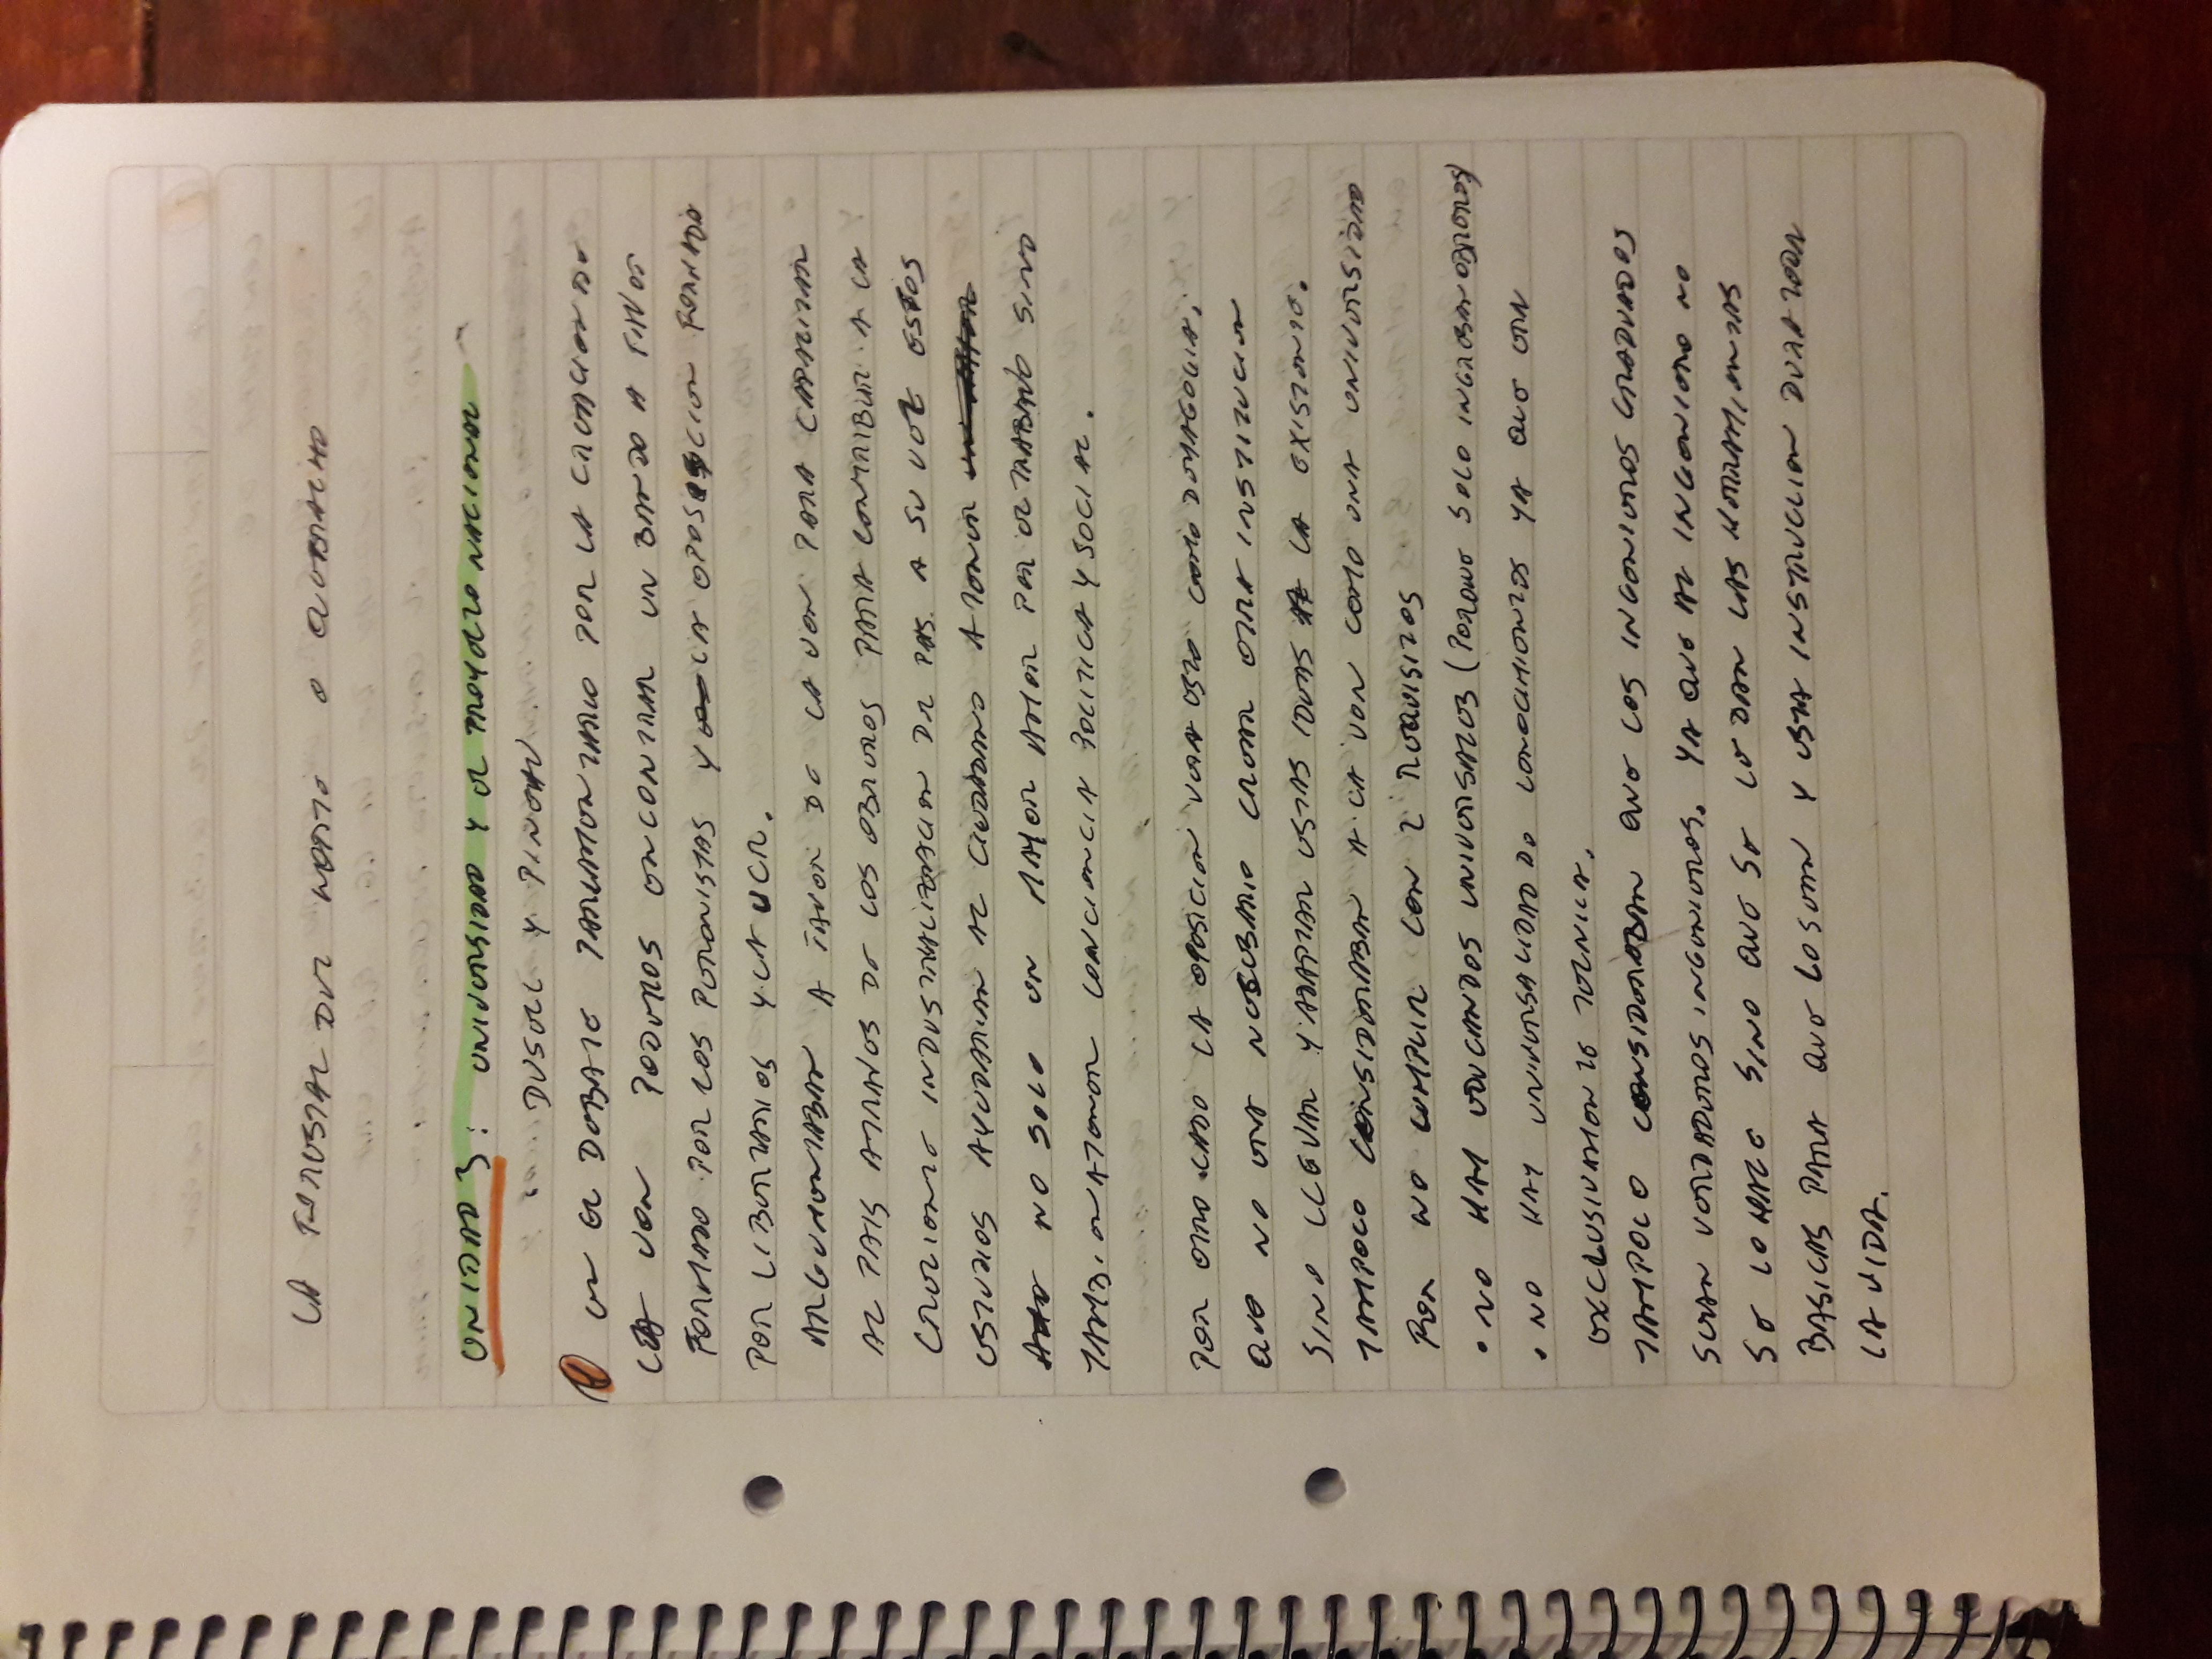 LA FORESTAL DEL NORTE O QUEBRACHO
UNIDAD 3: UNIVERSIDAD Y EL PROYECTO NACIONAL
DUSELL Y PINEAU.
EN EL DEBATE PARLAMENTARIO POR LA CREACION DE
LA UON PODEMOS ENCONTRAR UN BANDO A FAVOR
FORMADO POR LOS PERONISTAS Y LA OPOSICION FORMADA
POR LIBERTARIOS Y LA UCR.
ARGUMENTABAN A FAVOR DE LA UON PARA CAPACITAR
AL PAIS ATRAVES DE LOS OBREROS PARA CONTRIBUIR A LA
CRECIENTE INDUSTRIALIZACION DEL PAIS. A SU VEZ ESTOS
ESTUDIOS AYUDARIAN AL CIUDADANO A TENER
NO SOLO UN MAYOR AMOR POR EL TRABAJO SINO
TAMBIEN A TENER CONCIENCIA POLITICA Y SOCIAL.
POR OTRO LADO LA OPOSICION VEIA ESTO COMO DEMAGOGIA,
QUE NO ERA NECESARIO CREAR OTRA INSTITUCION
SINO LLEVAR Y ADAPTAR ESTAS IDEAS A LA EXISTENTE.
TAMPOCO CONSIDERABAN A LA UON COMO UNA UNIVERSIDAD
POR NO CUMPLIR CON 2 REQUISITOS
• NO HAY EDUCANDOS UNIVERSALES (PORQUE SOLO INGRESAN OBREROS)
• NO HAY UNIVERSALIDAD DE CONOCIMIENTOS YA QUE ERA
EXCLUSIVAMENTE TECNICA.
TAMPOCO CONSIDERABAN QUE LOS INGENIEROS GRADUADOS
SEAN VERDADEROS INGENIEROS. YA QUE AL INGENIERO NO
SE LO HACE SINO QUE SE LE DAN LAS HERRAMIENTAS
BASICAS PARA QUE LO SEAN Y ESTA INSTRUCCION DURA TODA
LA VIDA.